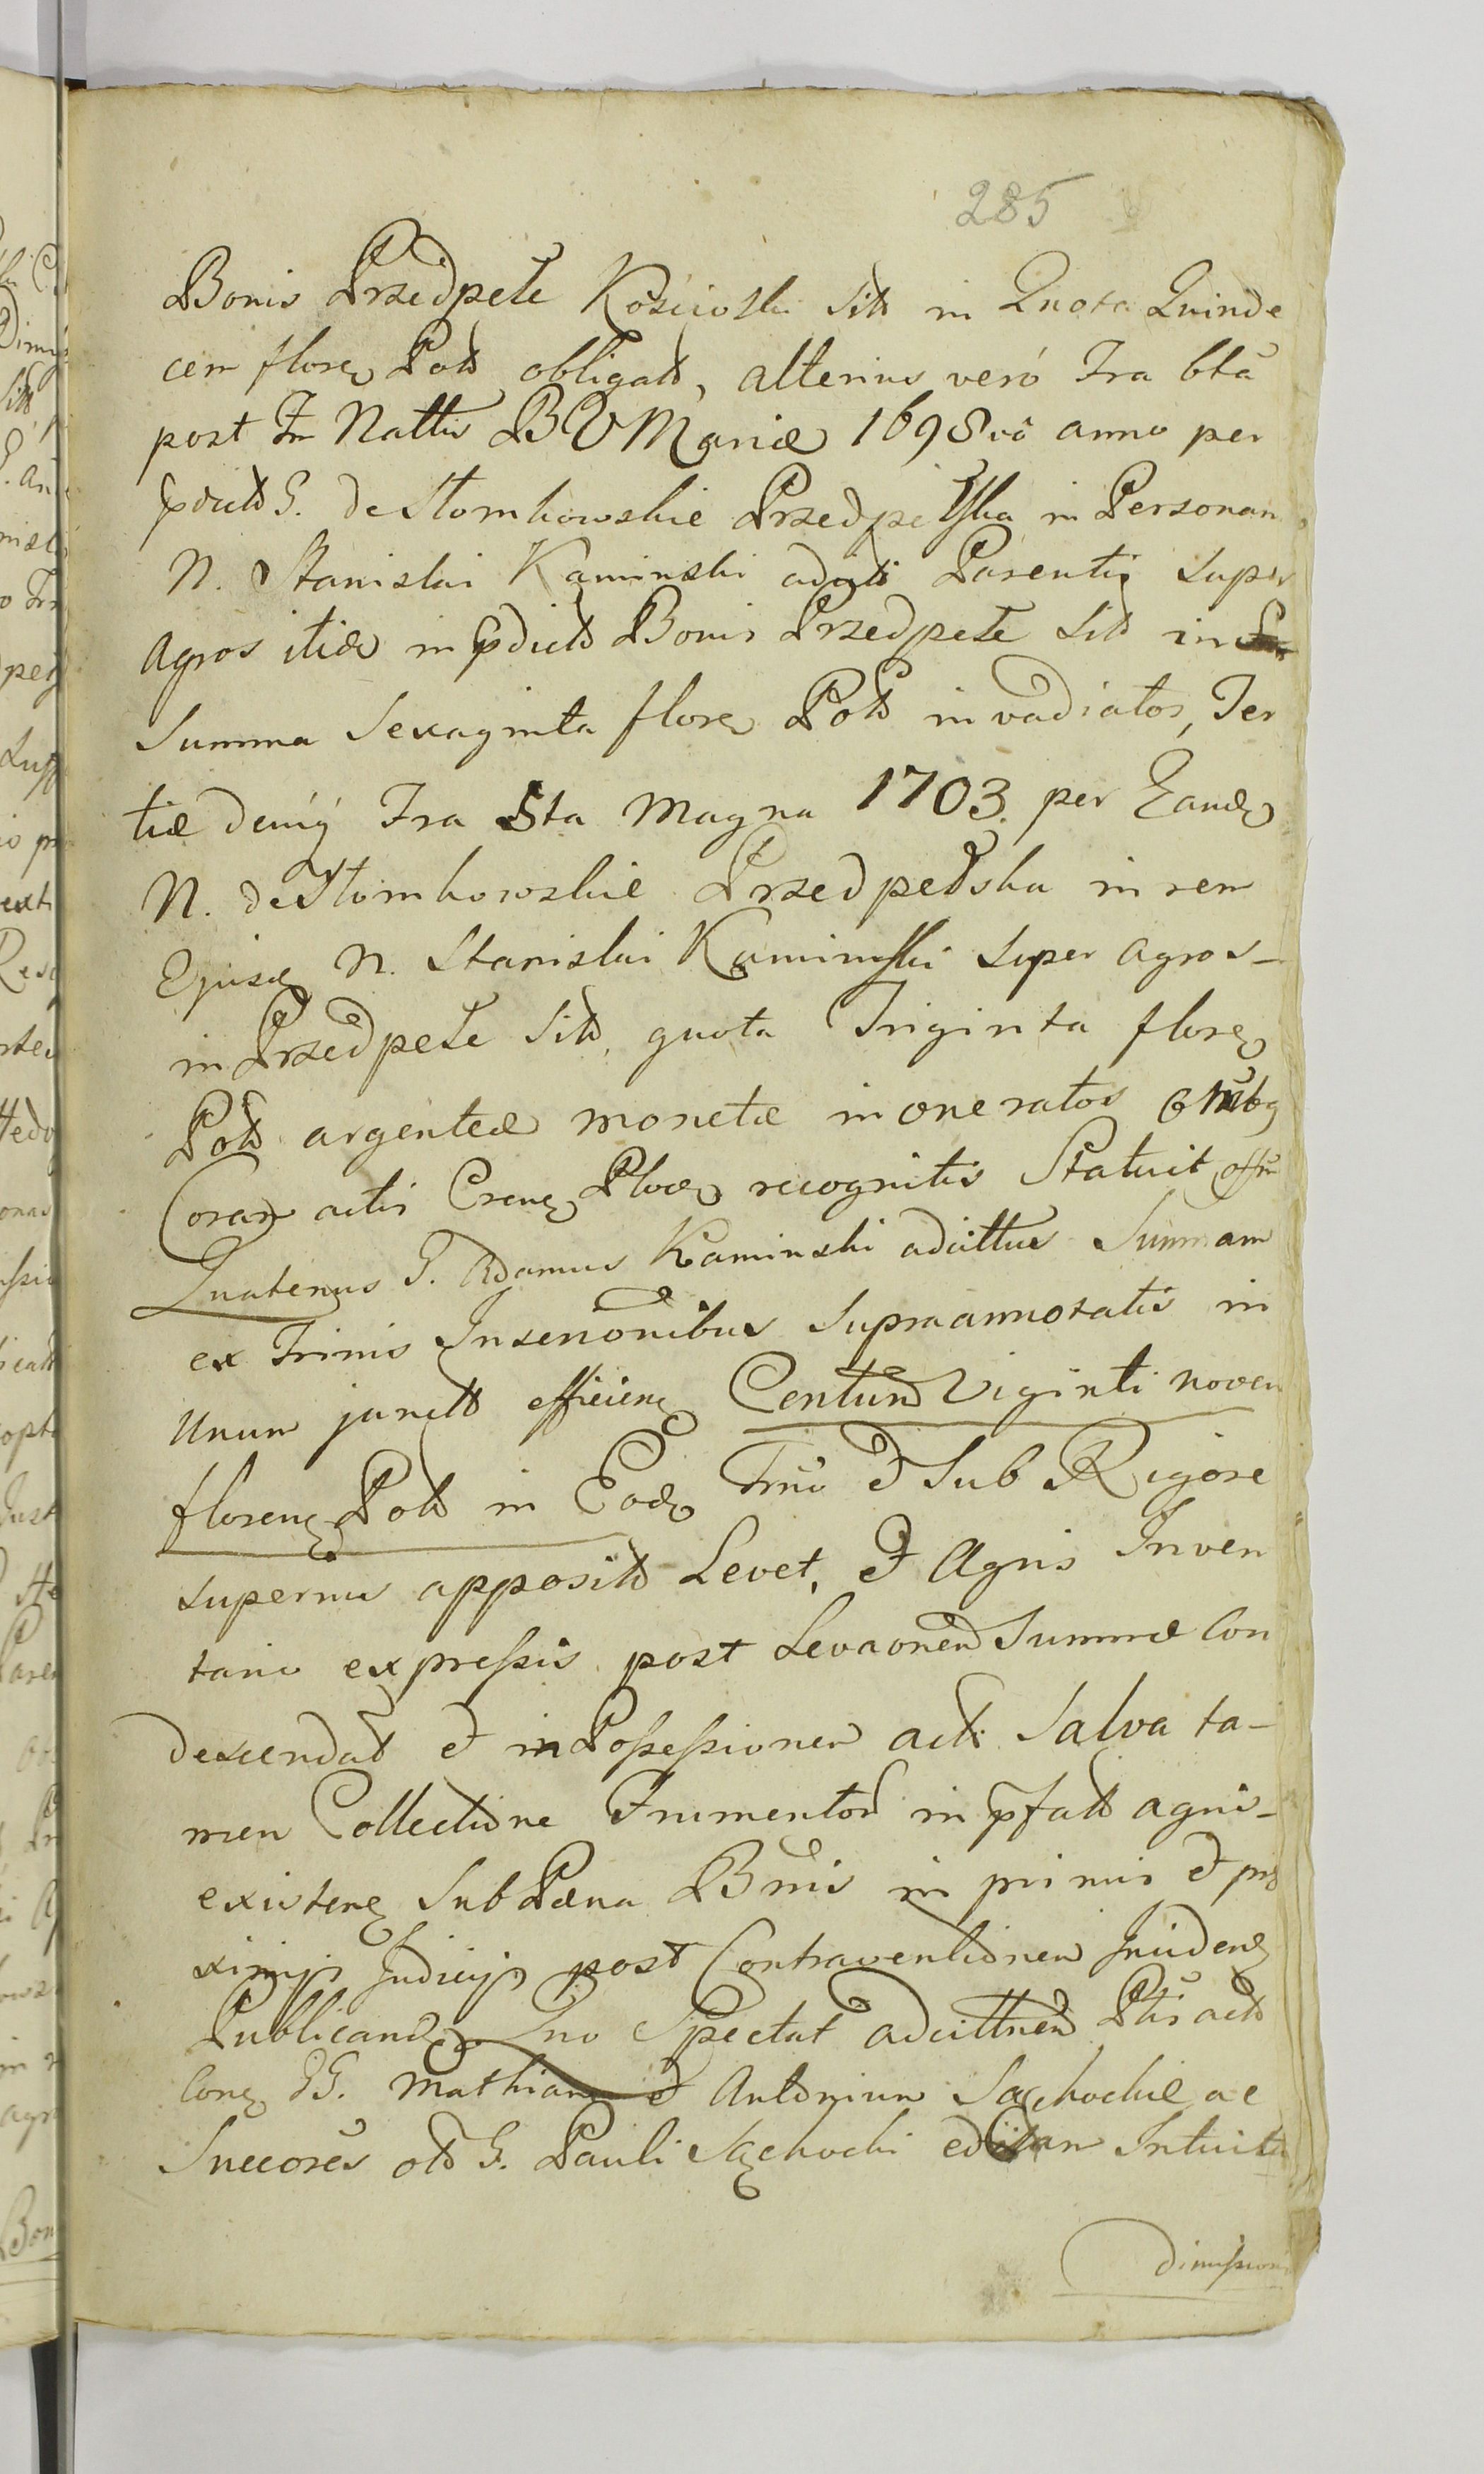 285
Bonis Przedpełe Kościoły sitt in Quota Quinde
cem floreņ Poll obligatt, alterius verò Fra bta
post Fm Nattis BVMariæ 1698vo anno per
pdictt G. de Słomkowskie Przedpełska in Personam
N. Stanislai Kaminski adcti Parentis super
Agros itidē in pdictt Bonis Przedpełe sitt in
Summa Sexaginta floreņ Poll invadiatos, Ter
tiæ deniq̄ Fra 5ta Magna 1703. per Eandē
N. de Słomkowskie Przedpełska in rem
Ejusdē N. Stanislai Kaminski super agros
in Przedpełe sitt, quota Triginta floreņ
Poll argenteæ monetæ inoneratos
Coram actis Crens Ploceņ recognitis Statuit
Quatenus G. Adamus Kaminski adcittus Summam
ex Trinis Inscrionibus supraannotatis in
Unum junctt efficieņ Centum Viginti novem
floreņ Poll in Eodē Trno et Sub Rigore
superius appositt Levet, et Agris Inven
tario expressis post Levaonem Summæ Con
descendat et in Possessionem actt Salva ta-
men Collectione Frumentor in pfatt agris
existeņ Sub Pæna Bnnis in primis et pro
ximis Judicijs post Contraventionem Incideņ
Publicandē. Quo Spectat adcittnem Ptis actt
Coņ GG. Mathiam et Antonium Sąchockie ac
Succores olt G. Pauli Sąchocki editam Intuitu
Dimissionis